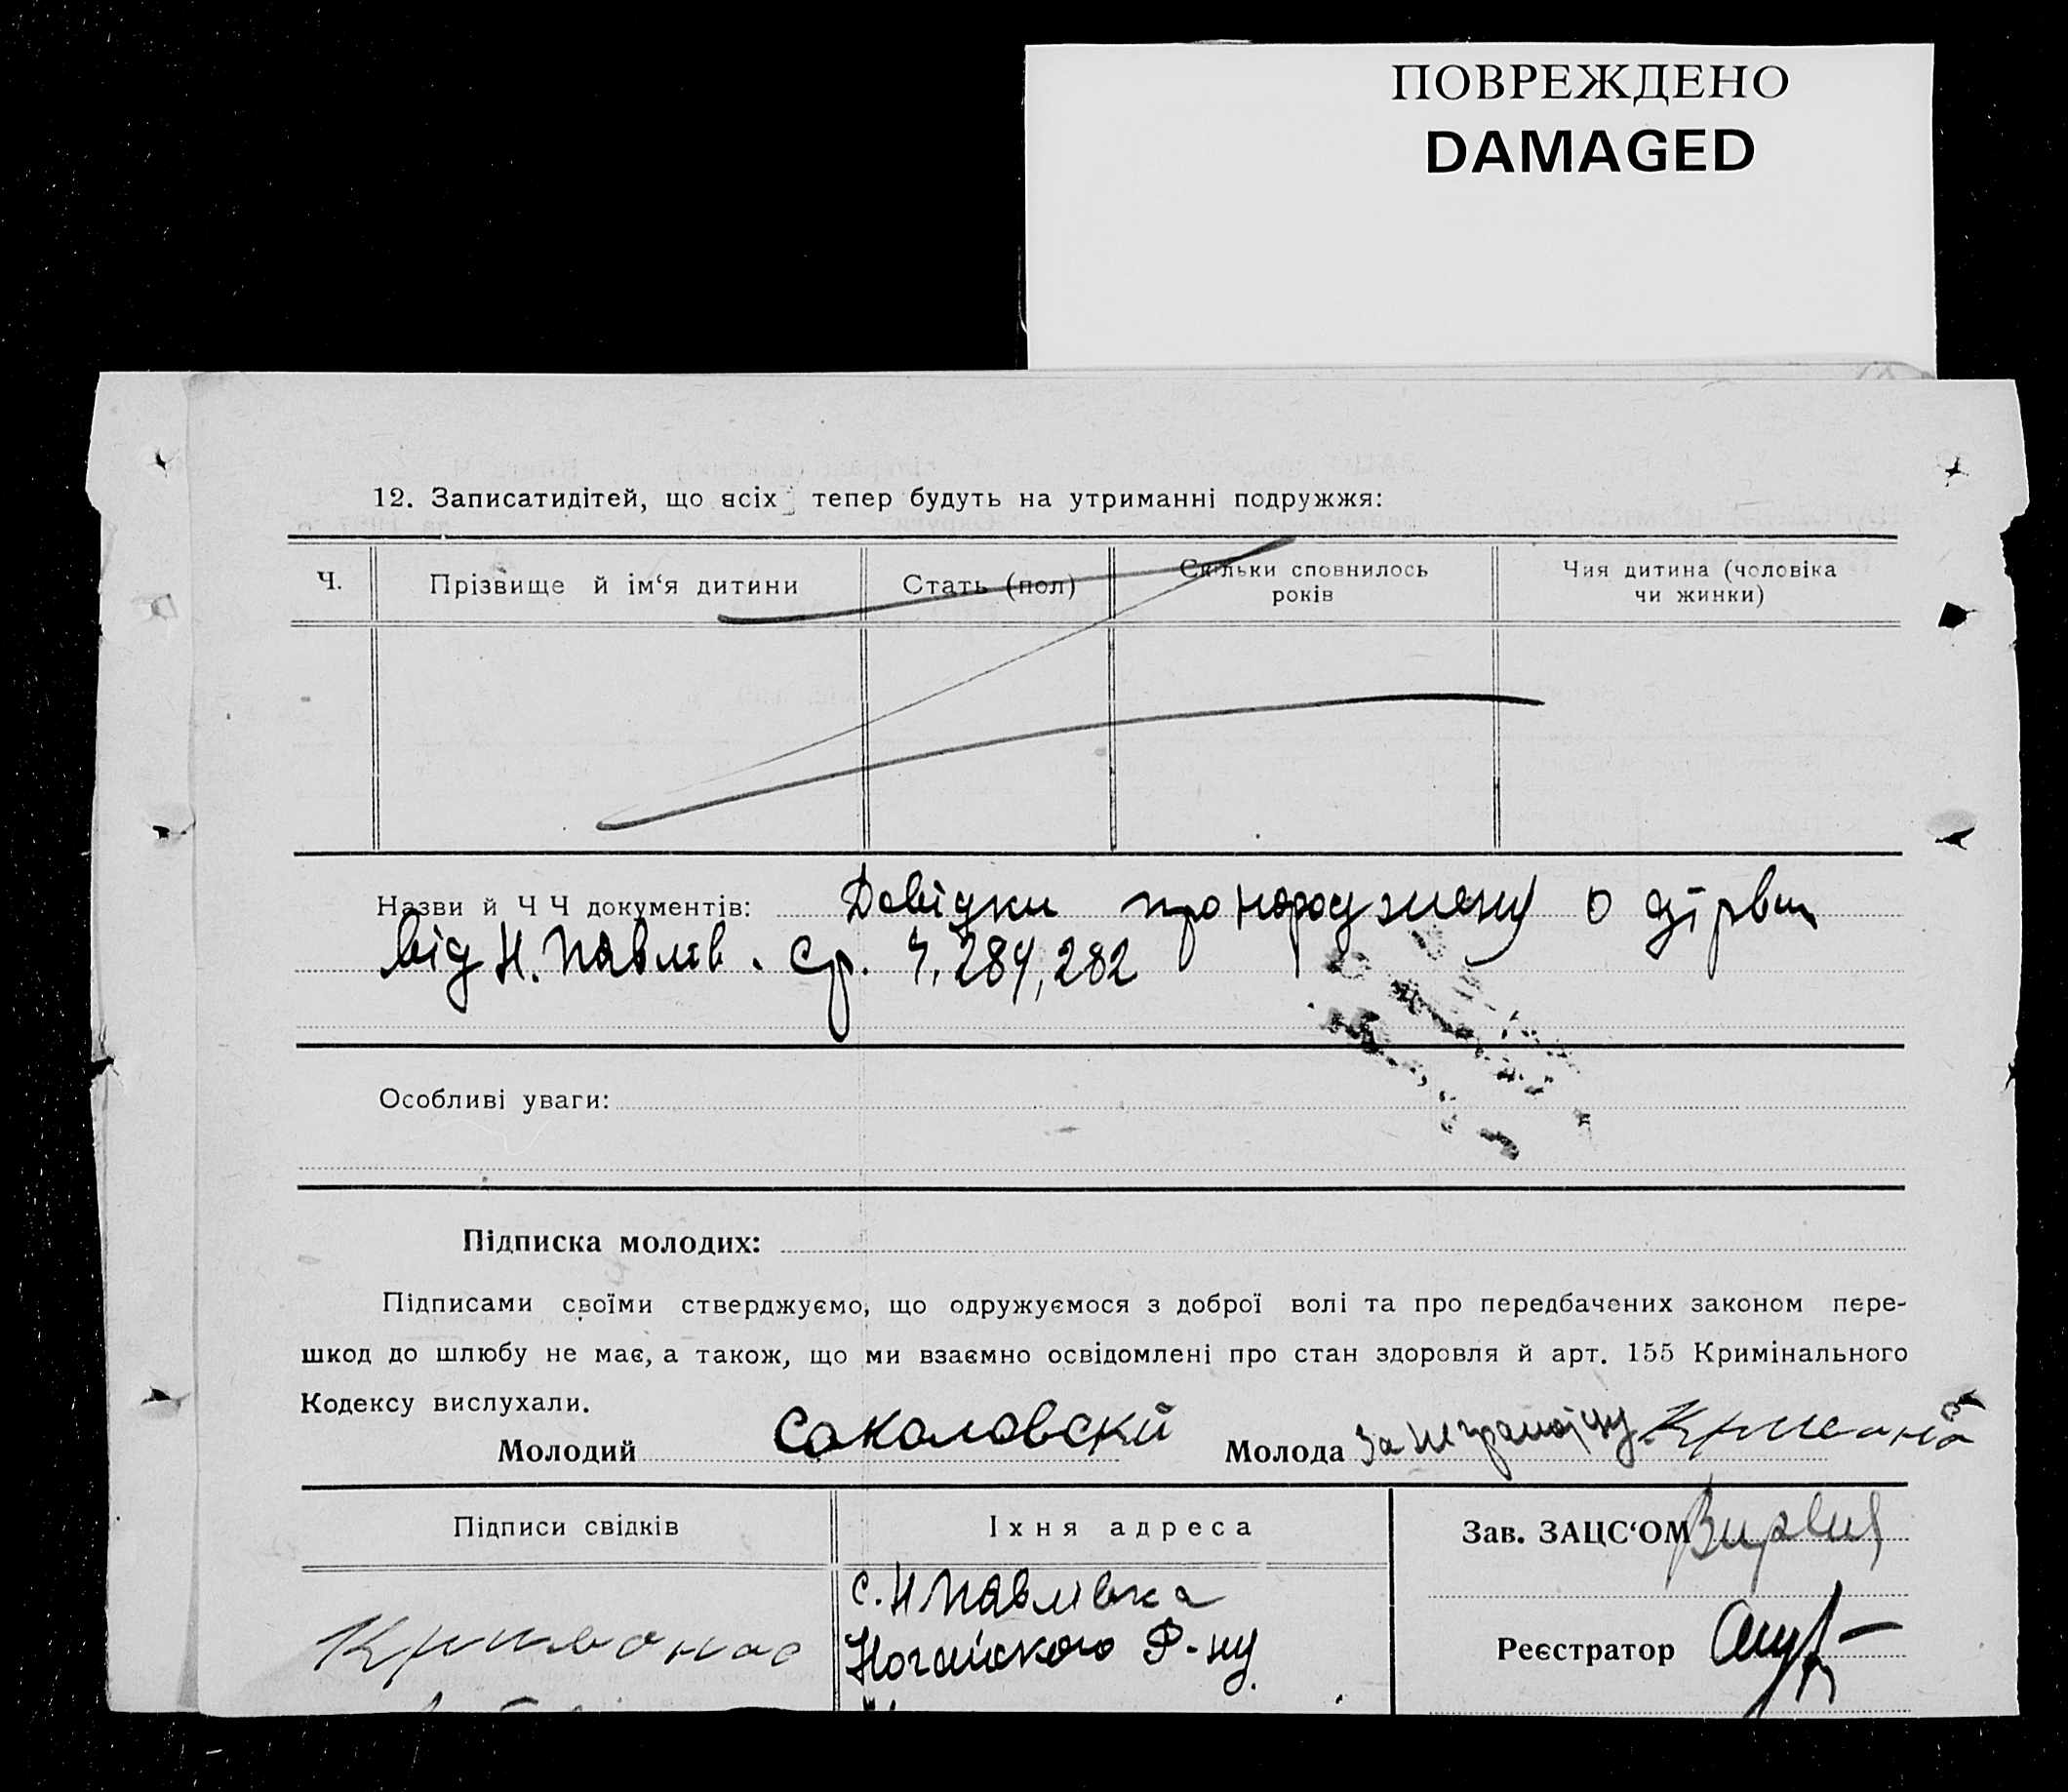 ПОВРЕЖДЕНО
DAMAGED
12. Записатидітей, що всіх тепер будуть на утриманні подружжя:
Ч.
Прізвище й ім‘я дитини
Стать (пол)
Скільки сповнилось
років
Чия дитина (чоловіка
чи жинки)
Назви й Ч Ч документів: Довідки про
від Н. Павлів. Ср. Ч. 284, 282
Особливі уваги:
Підписка молодих:
Підписами своїми стверджуємо, що одружуємося з доброї волі та про передбачених законом пере-
шкод до шлюбу не має, а також, що ми взаємно освідомлені про стан здоровля й арт. 155 Кримінального
Кодексу вислухали.
Молодий Соколовский Молода За
Підписи свідків
Іхня адреса
Зав. ЗАЦС‘ОМ
с. Н Павлівка
Кривонос
Ногайского Р-ну
Реєстратор